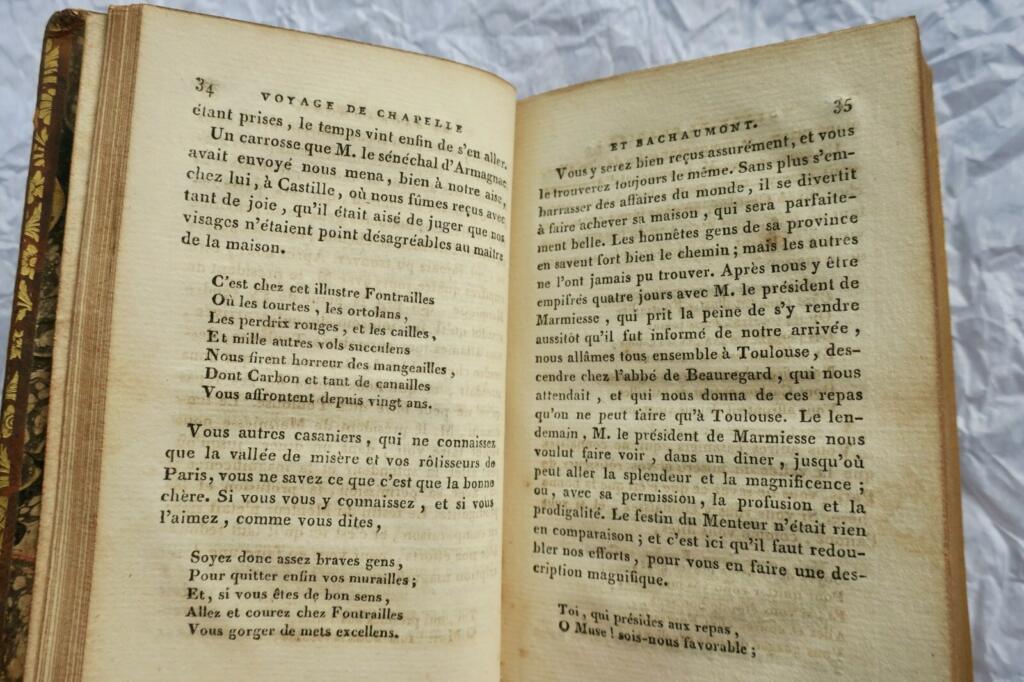 34
VOYAGE DE CHAPELLE
étant prises, le temps vint enfin de s'en aller.
Un carrosse que M. le sénéchal d'Armagnac
avait envoyé nous mena, bien à notre aise,
chez lui, à Castille, où nous fûmes reçus avec
tant de joie, qu'il était aisé de juger que nos
visages n'étaient point désagréables au maître
de la maison.
C'est chez cet illustre Fontrailles
Où les tourtes, les ortolans,
Les perdrix rouges, et les cailles,
Et mille autres vols succulens
Nous firent horreur des mangeailles,
Dont Carbon et tant de canailles
Vous affrontent depuis vingt ans.
Vous autres casaniers, qui ne connaissez
que la vallée de misère et vos rôtisseurs de
Paris, vous ne savez ce que c'est que la bonne
chère. Si vous vous y connaissez, et si vous
l'aimez, comme vous dites,
Soyez donc assez braves gens,
Pour quitter enfin vos murailles;
Et, si vous êtes de bon sens,
Allez et courez chez Fontrailles
Vous gorger de mets excellens.
35
ET BACHAUMONT.
Vous y serez bien reçus assurément, et vous
le trouverez toujours le même. Sans plus s'em-
barrasser des affaires du monde, il se divertit
à faire achever sa maison, qui sera parfaite-
ment belle. Les honnêtes gens de sa province
en savent fort bien le chemin; mais les autres
ne l'ont jamais pu trouver. Après nous y être
empifrés quatre jours avec M. le président de
Marmiesse, qui prit la peine de s'y rendre
aussitôt qu'il fut informé de notre arrivée,
nous allâmes tous ensemble à Toulouse, des-
cendre chez l'abbé de Beauregard, qui nous
attendait, et qui nous donna de ces repas
qu'on ne peut faire qu'à Toulouse. Le len-
demain, M. le président de Marmiesse nous
voulut faire voir, dans un dîner, jusqu'où
peut aller la splendeur et la magnificence;
ou, avec sa permission, la profusion et la
prodigalité. Le festin du Menteur n'était rien
en comparaison; et c'est ici qu'il faut redou-
bler nos efforts, pour vous en faire une des-
cription magnifique.
Toi, qui présides aux repas,
O Muse! sois-nous favorable;